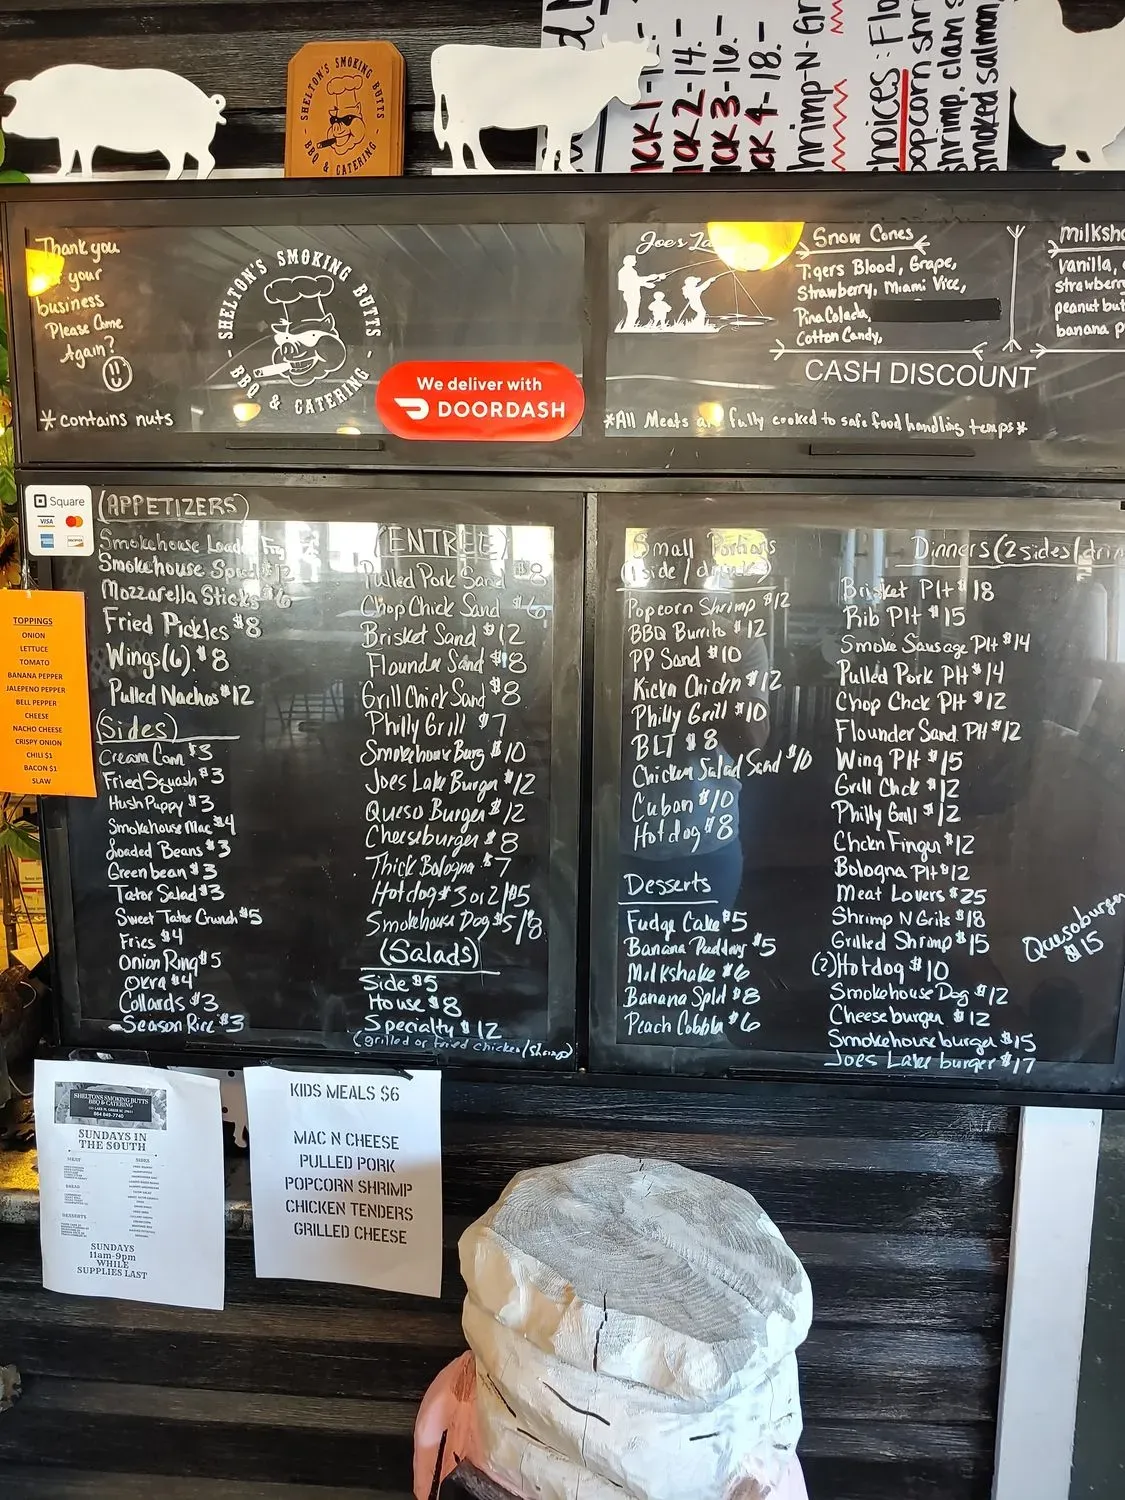 SHELTON'S SMOKING BUTTS
BBQ & CATERING
1-
2-14.-
3-16.-
4-18.-
Shrimp-N-Gr
Choices: Flo
popcorn shri
shrimp, clam s
smoked salmon,
Thank you
for your
business
Please Come
Again?
*contains nuts
SHELTON'S SMOKING BUTTS
BBQ & CATERING
We deliver with
DOORDASH
Joes La
Snow Cones
Tigers Blood, Grape,
Strawberry, Miami Vice,
Pina Colada,
Cotton Candy,
CASH DISCOUNT
*All Meats are fully cooked to safe food handling temps*
milksha
vanilla,
strawberr
peanut but
banana p
Square
VISA
DISCOVER
(APPETIZERS)
Smokehouse Load Fry
Smokehouse Spud $12
Mozzarella Sticks $6
Fried Pickles $8
Wings(6) $8
Pulled Nachos $12
(Sides)
Cream Corn $3
Fried Squash $3
Hush Puppy $3
Smokehouse Mac $4
Loaded Beans $3
Green bean $3
Tator Salad $3
Sweet Tator Crunch $5
Fries $4
Onion Ring $5
Okra $4
Collards $3
Season Rice $3
(ENTREE)
Pulled Pork Sand $8
Chop Chick Sand $6
Brisket Sand $12
Flounder Sand $8
Grill Chick Sand $8
Philly Grill $7
Smokehouse Burg $10
Joes Lake Burger $12
Queso Burger $12
Cheeseburger $8
Thick Bologna $7
Hotdog $3 or 2/$5
Smokehouse Dog $5/8
(Salads)
Side $5
House $8
Specialty $12
(grilled or fried chicken/shrimp)
Small Portions
(1 side/drink)
Popcorn Shrimp $12
BBQ Burrito $12
PP Sand $10
Kickn Chickn $12
Philly Grill $10
BLT $8
Chicken Salad Sand $10
Cuban $10
Hotdog $8
Desserts
Fudge Cake $5
Banana Pudding $5
Milkshake $6
Banana Split $8
Peach Cobbla $6
Dinners (2 sides/drin
Brisket Plt $18
Rib Plt $15
Smoke Sausage Plt $14
Pulled Pork Plt $14
Chop Chck Plt $12
Flounder Sand Plt $12
Wing Plt $15
Grill Chck $12
Philly Grill $12
Chckn Finger $12
Bologna Plt $12
Meat Lovers $25
Shrimp N Grits $18
Grilled Shrimp $15
(2) Hotdog $10
Smokehouse Dog $12
Cheeseburger $12
Smokehouse burger $15
Joes Lake burger $17
Quesoburger
$15
TOPPINGS
ONION
LETTUCE
TOMATO
BANANA PEPPER
JALEPENO PEPPER
BELL PEPPER
CHEESE
NACHO CHEESE
CRISPY ONION
CHILI $1
BACON $1
SLAW
SHELTONS SMOKING BUTTS
BBQ & CATERING
864 849-7740
SUNDAYS IN
THE SOUTH
MEAT
SIDES
BREAD
DESSERTS
SUNDAYS
11am-9pm
WHILE
SUPPLIES LAST
KIDS MEALS $6
MAC N CHEESE
PULLED PORK
POPCORN SHRIMP
CHICKEN TENDERS
GRILLED CHEESE